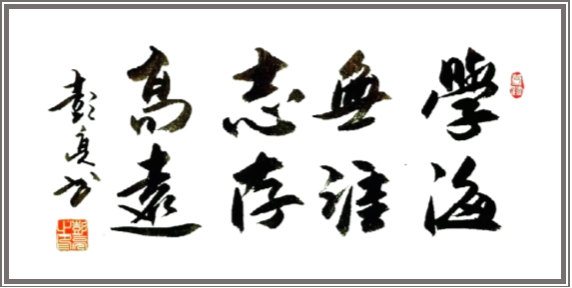 學海
無涯
志存
高遠
彭书